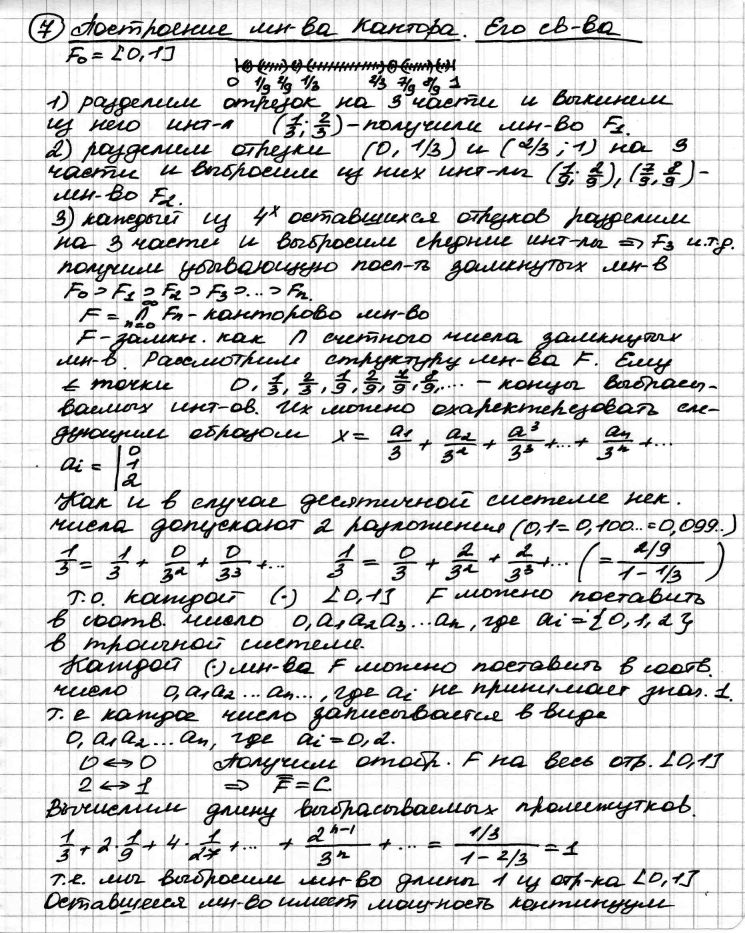 7 Построение мн-ва Кантора. Его св-ва
F₀ = [0,1]
0 1/9 2/9 1/3 2/3 7/9 8/9 1
1) разделим отрезок на 3 части и выкинем
из него инт-л (1/3; 2/3) - получили мн-во F₁.
2) разделим отрезки (0, 1/3) и (2/3; 1) на 3
части и выбросим из них инт-лы (1/9; 2/9), (7/9, 8/9) -
мн-во F₂.
3) каждый из 4ˣ оставшихся отрезков разделим
на 3 части и выбросим средние инт-лы ⇒ F₃ и.т.д.
получим убывающую посл-ть замкнутых мн-в
F₀ ⊃ F₁ ⊃ F₂ ⊃ F₃ ⊃ ... ⊃ Fₙ.
F = ∩ₙ₌₀^∞ Fₙ - канторово мн-во
F - замкн. как ∩ счетного числа замкнутых
мн-в. Рассмотрим структуру мн-ва F. Ему
∈ точки 0, 1/3, 2/3, 1/9, 2/9, 7/9, 8/9, ... - концы выбрасы-
ваемых инт-ов. Их можно охарактеризовать сле-
дующим образом x = a₁/3 + a₂/3² + a³/3³ + ... + aₙ/3ⁿ + ...
aᵢ = | 0 1 2
Как и в случае десятичной системе нек.
числа допускают 2 разложения (0,1 = 0,100.. = 0,099..)
1/3 = 1/3 + 0/3² + 0/3³ + ... 1/3 = 0/3 + 2/3² + 2/3³ + ... ( = (2/9)/(1 - 1/3) )
Т.о. каждой (·) [0,1] F можно поставить
в соотв. число 0,a₁a₂a₃...aₙ, где aᵢ = {0,1,2}
в троичной системе.
Каждой (·) мн-ва F можно поставить в соотв.
число 0,a₁a₂...aₙ..., где aᵢ не принимает знач. 1.
т.е каждое число записывается в виде
0,a₁a₂...aₙ, где aᵢ = 0,2.
0 ↔ 0 Получим отобр. F на весь отр. [0,1]
2 ↔ 1 ⇒ F̿ = C
Вычислим длину выбрасываемых промежутков.
1/3 + 2·1/9 + 4·1/27 + ... + 2ⁿ⁻¹/3ⁿ + ... = (1/3)/(1 - 2/3) = 1
т.е. мы выбросим мн-во длины 1 из отр-ка [0,1]
Оставшееся мн-во имеет мощность континуум